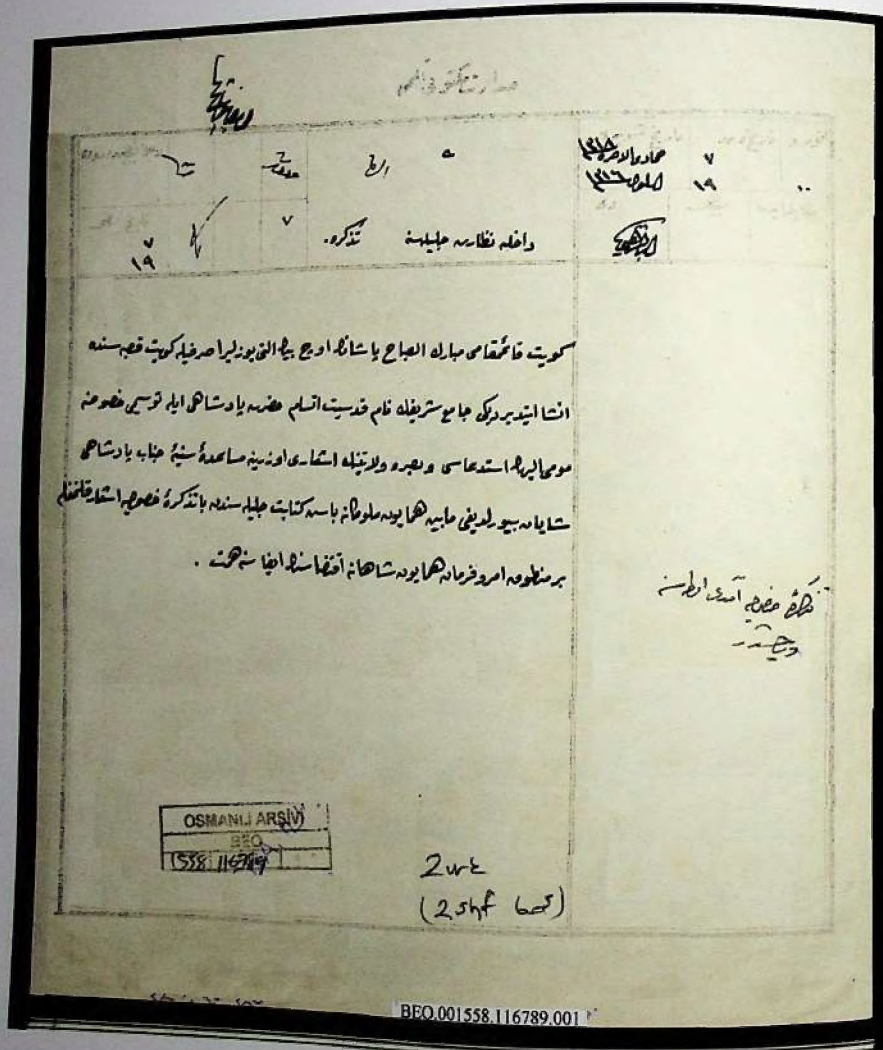 صدارت مكتوبى قلمى
٧ جمادى الاخره ١٣١٨
١٩ ايلول ١٣١٦
٧
داخليه نظارت جليله سنه تذكره
٧
١٩
كويت قائمقامى مبارك الصباح پاشانك اوچ بيك التى يوز ليرا صرفيله كويت قصبه سنده
انشا ايتديرديكى جامع شريفك نام قدسيت اتسام حضرت پادشاهى ايله توسيمى خصوصنه
مومى اليهك استدعاسى و بصره ولايتنك اشعارى اوزرينه مساعدهٔ سنيهٔ جناب پادشاهى
شايان بيورلديغى مابين همايون ملوكانه باش كتابت جليله سندن باتذكرهٔ خصوصيه اشعار قلنمغله
بر منطوق امر و فرمان همايون شاهانه اقتضاسنك ايفاسنه همت .
تذكرهٔ خصوصيه آمدى اوطه سنه
OSMANLI ARŞİVİ
BEO
1558 116789
2 ve
(2 shf boş)
BEO.001558.116789.001